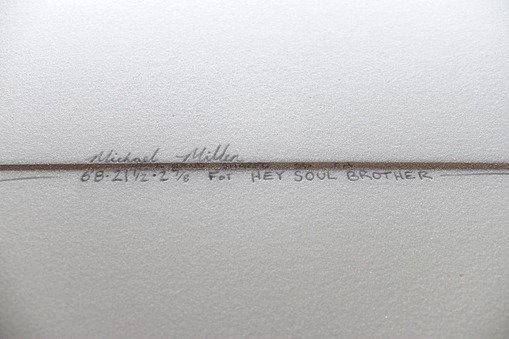 Michael Miller
6'8·21 1/2·2 5/8 For HEY SOUL BROTHER